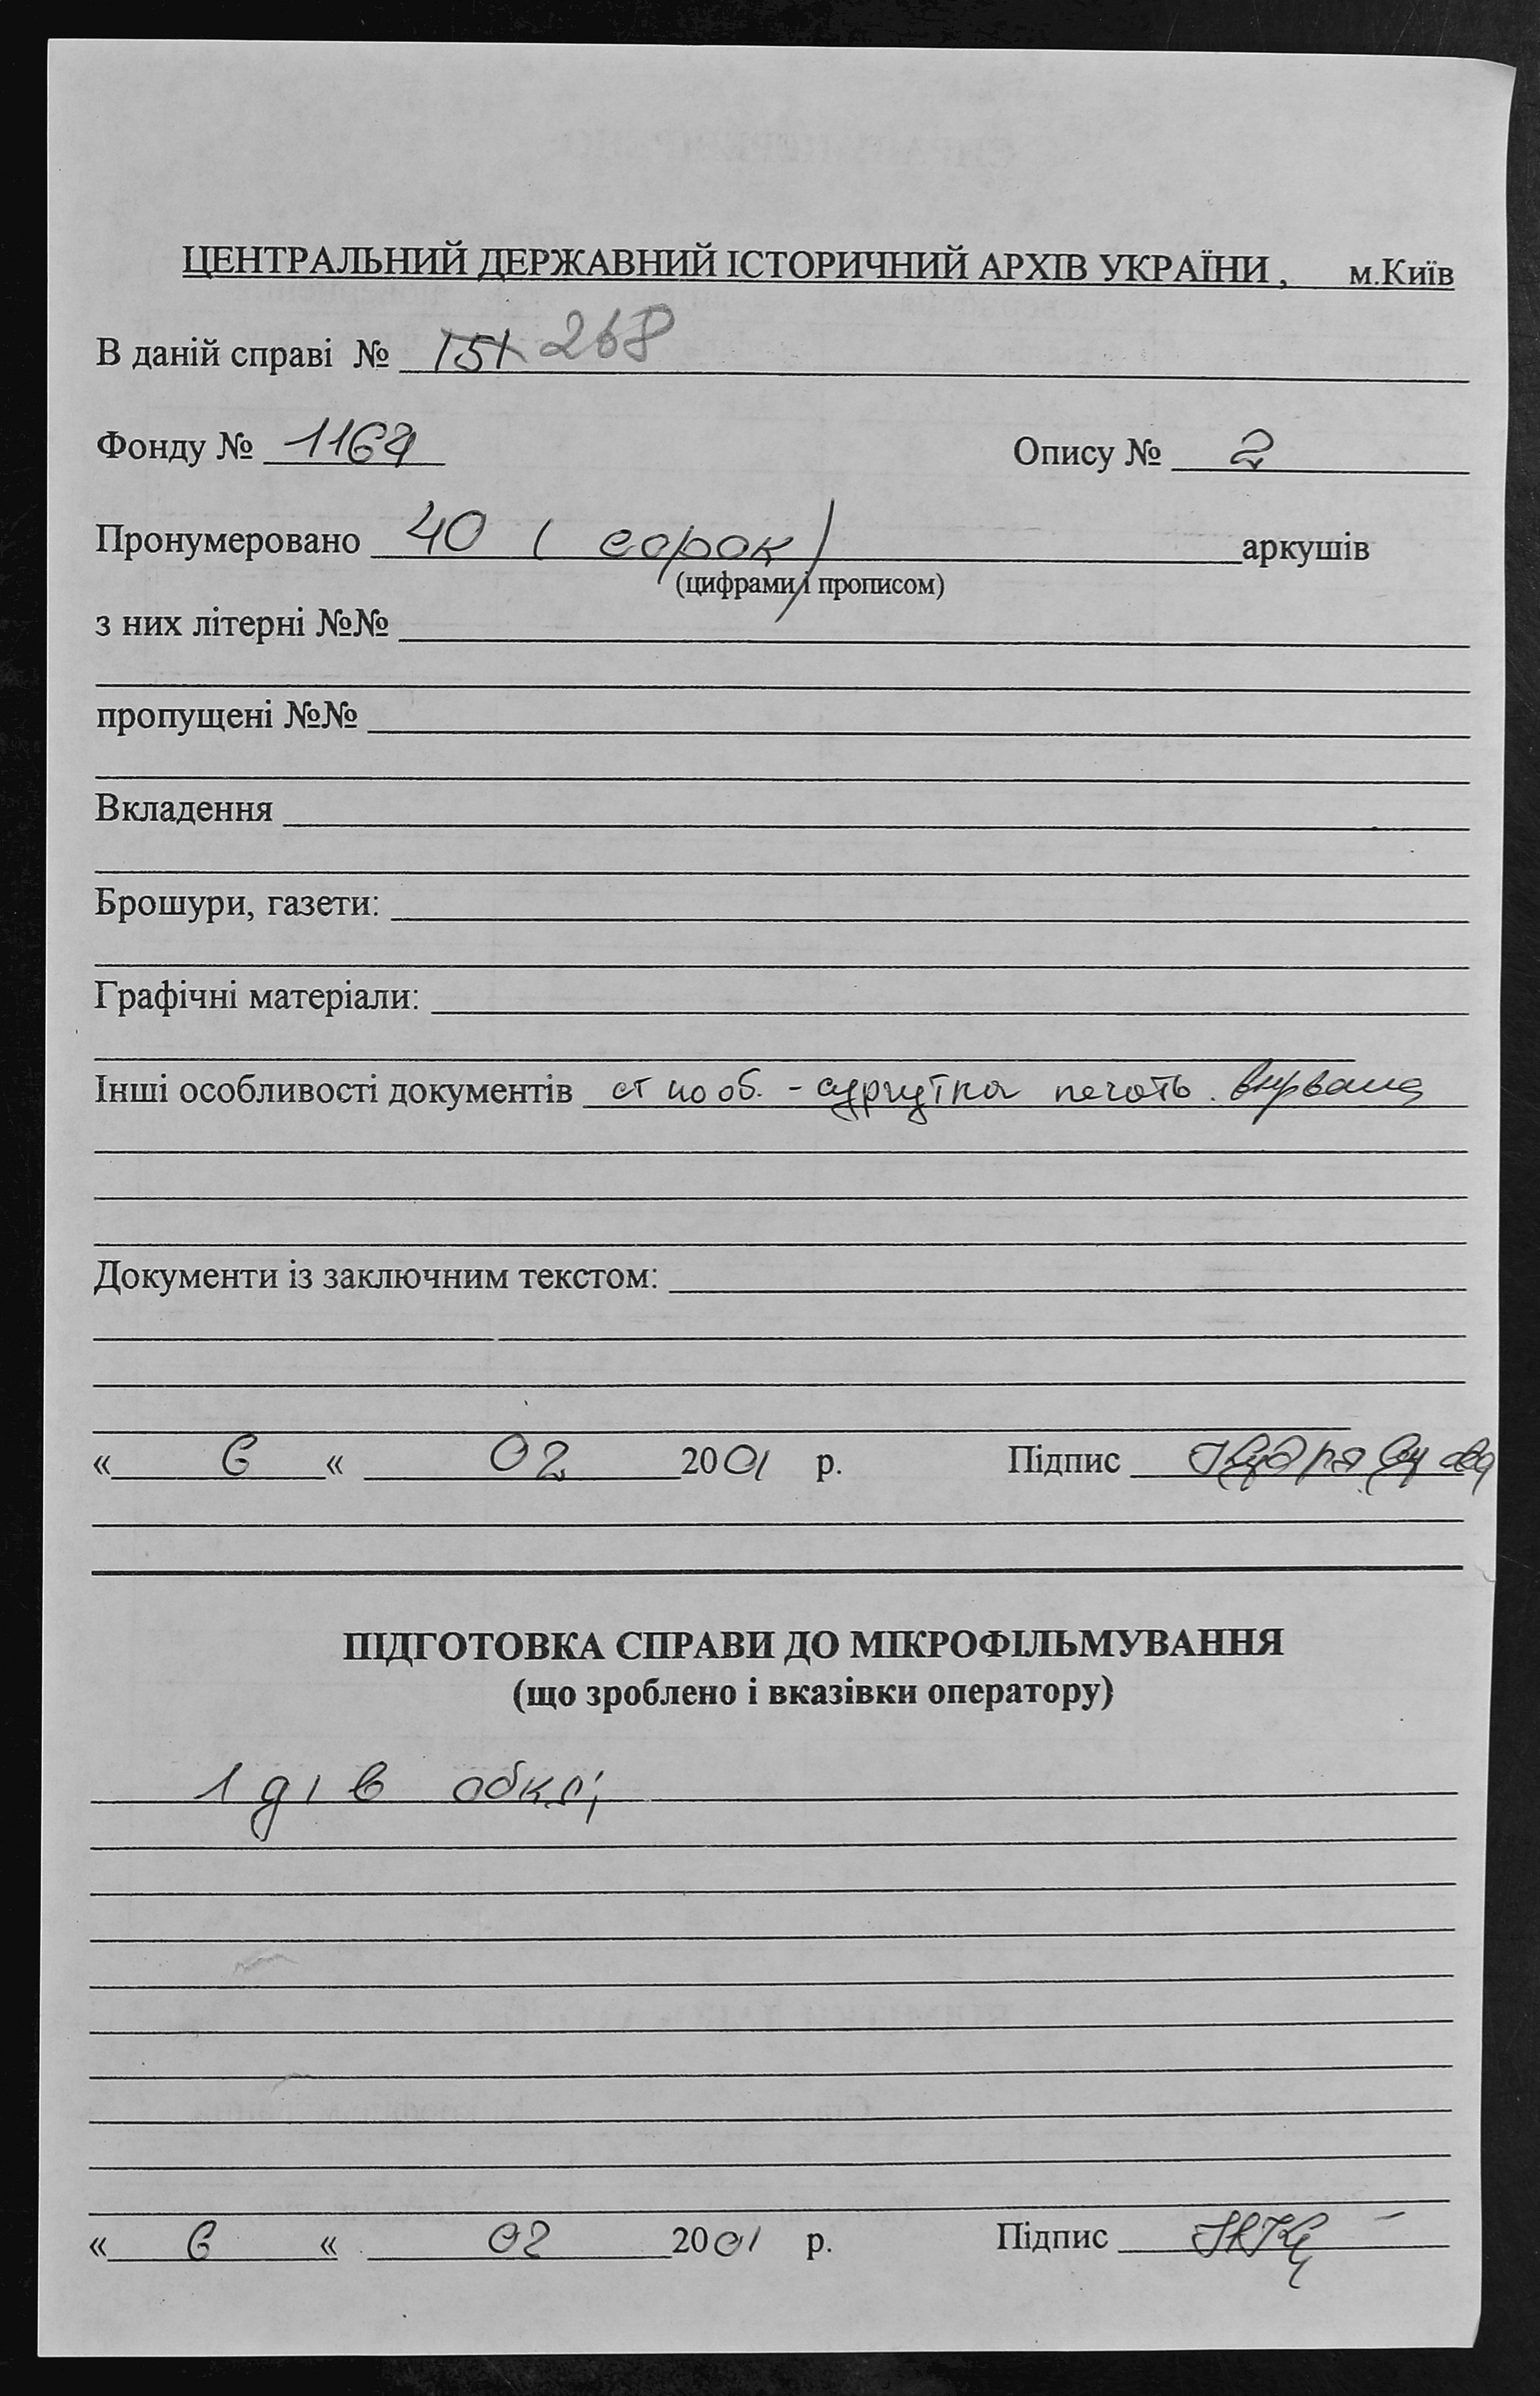 ЦЕНТРАЛЬНИЙ ДЕРЖАВНИЙ ІСТОРИЧНИЙ АРХІВ УКРАЇНИ , м.Київ
В даній справі № 151 268
Фонду № 1164 Опису № 2
Пронумеровано 40 ( сорок ) аркушів
(цифрами і прописом)
з них літерні №№
пропущені №№
Вкладення
Брошури, газети:
Графічні матеріали:
Інші особливості документів об. - сургутна печать. вирвана
Документи із заключним текстом:
« 6 « 02 2001 р. Підпис
ПІДГОТОВКА СПРАВИ ДО МІКРОФІЛЬМУВАННЯ
(що зроблено і вказівки оператору)
1 д і в обкл;
« 6 « 02 2001 р. Підпис